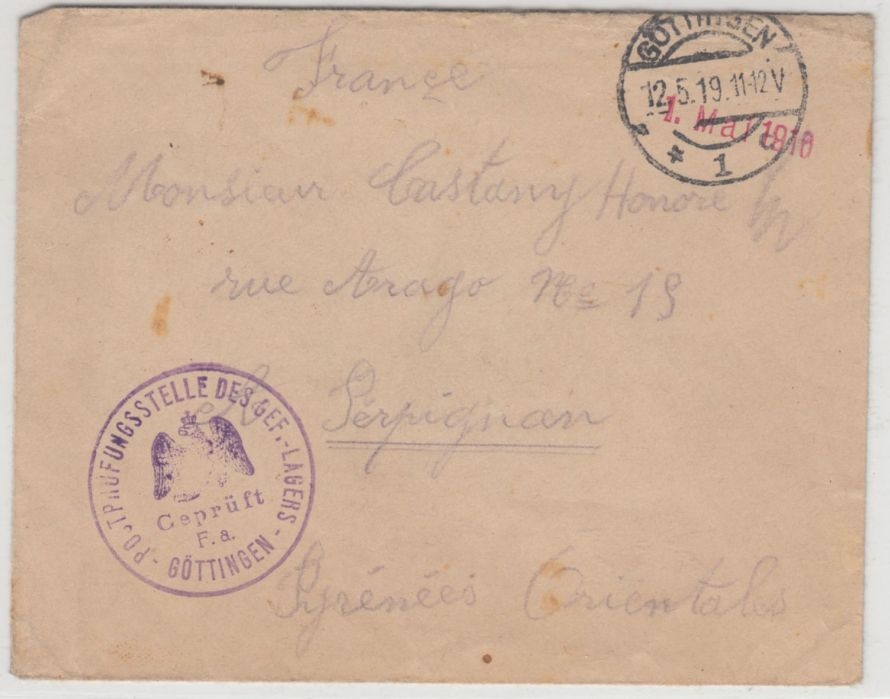 France
GÖTTINGEN
12.5.19.11-12V
1. Mai 1916
* 1 c
Monsieur Castany Honoré
rue Arago No 19
A Perpignan
Pyrénées Orientales
POSTPRÜFUNGSSTELLE DES GEF.-LAGERS
- GÖTTINGEN -
Geprüft
F. a.